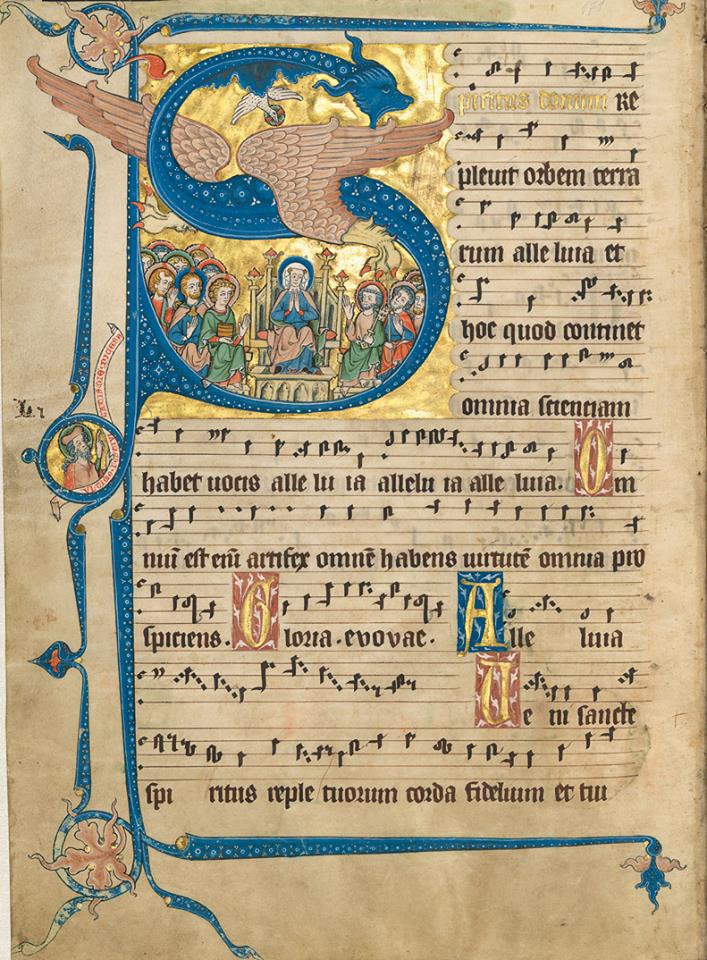 Spiritus domini re
pleuit orbem terra
rum alle luia et
hoc quod continet
omnia scienciam
habet uocis alle lu ia allelu ia alle luia. Om
niū est eni artifex omnē habens uirtutē omnia pro
spiciens. Gloria. evovae. Alle luia
Ve ni sancte
spi ritus reple tuorum corda fidelium et tui